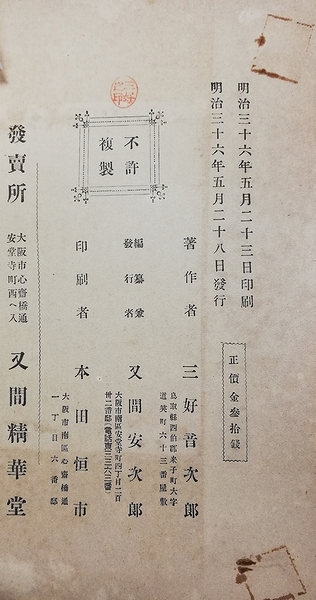 明治三十六年五月二十三日印刷
明治三十六年五月二十八日發行
正價金叁拾錢
不許
複製
著作者 三好音次郎
鳥取縣西伯郡米子町大字
道笑町六十三番屋敷
編纂兼
發行者 又間安次郎
大阪市南區安堂寺町四丁目二百
卅二番邸(電話東二三六三番)
印刷者 本田恒市
大阪市南區心齋橋通
一丁目六番邸
發賣所
大阪市心齋橋通
安堂寺町西ヘ入
又間精華堂